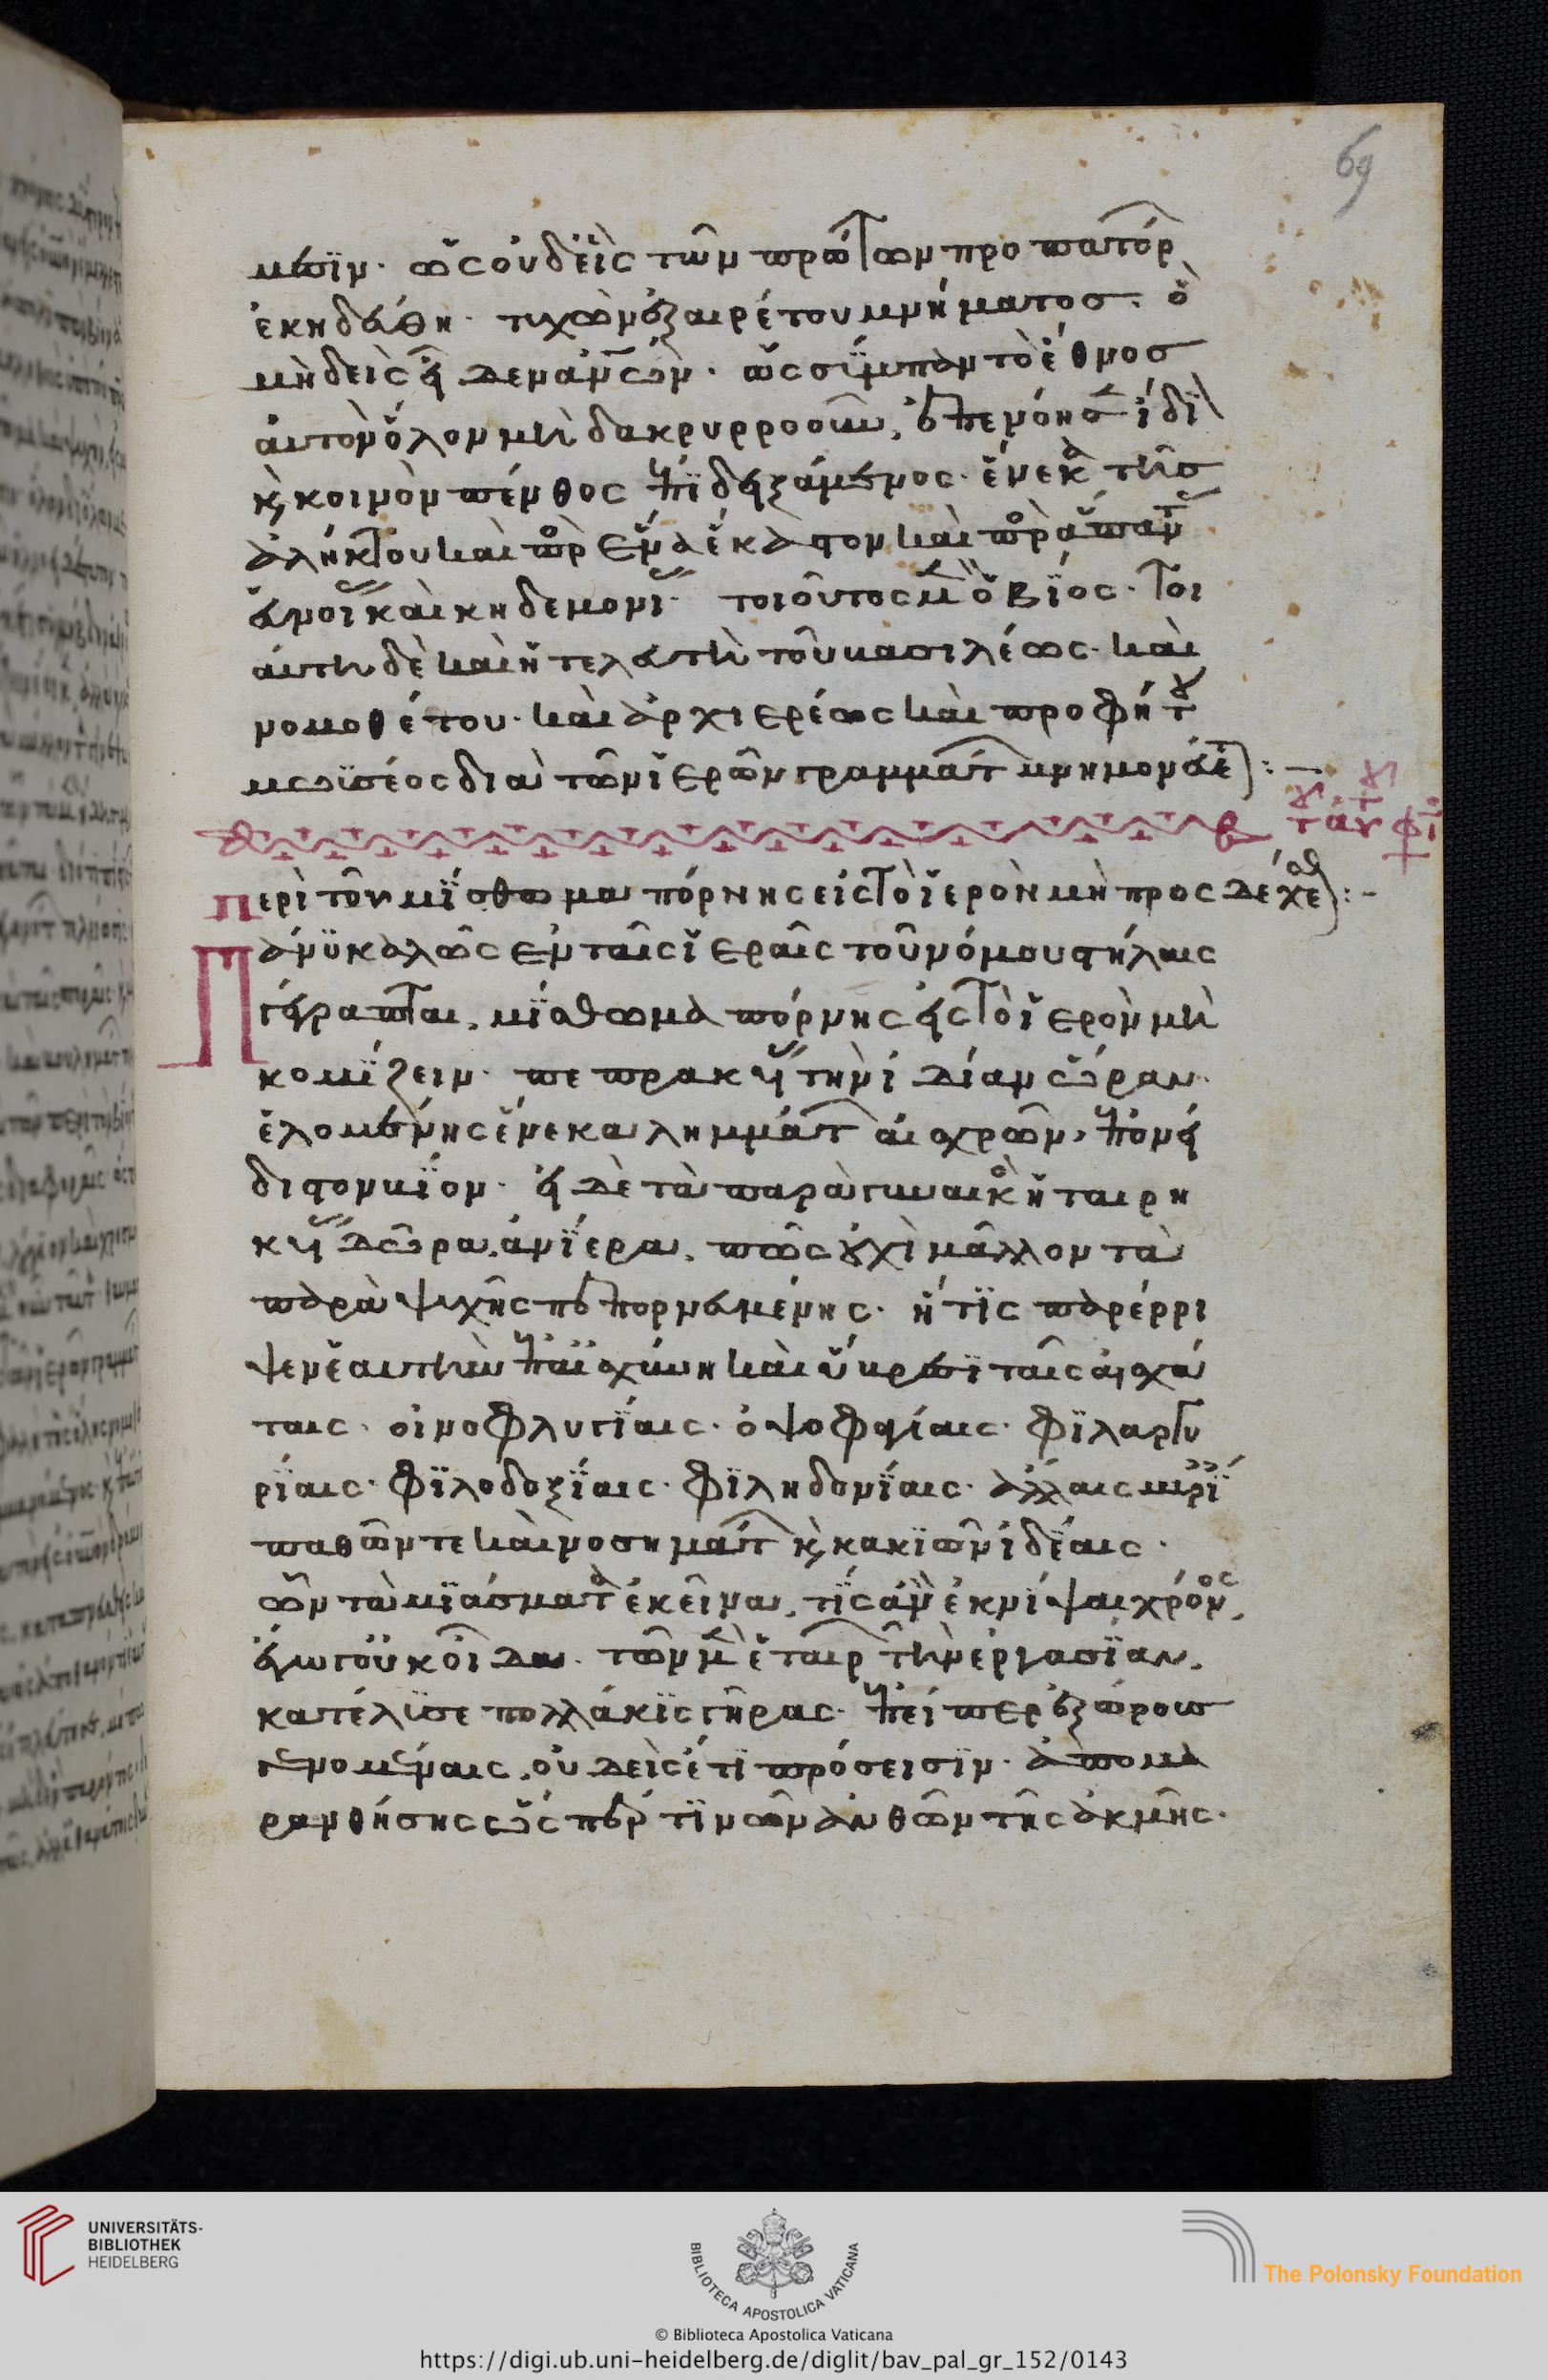 69
μεσιν· ὡς οὐδεὶς τῶν πρώτων προπατόρ
ἐκηδεύθη· τυχὼν ἐξαιρέτου μνήματος· ὃ
μηδεὶς εἶδεν ἀνθρώπων· ὡς σύμπαν τὸ ἔθνος
αὐτὸν ὅλον μὴ δακρυρροοῦν, ἐπένθησεν ἰδι
κ κοινὸν πένθος ἐπιδειξάμενος· ἕνεκα τῆς
ἀλήκτου καὶ παρ ἕνα ἕκαστον καὶ παρ ἅπαν
εὐνοίας καὶ κηδεμονίας· τοιοῦτος μὲν ὁ βίος· τοι
αύτη δὲ καὶ ἡ τελευτὴ τοῦ βασιλέως· καὶ
νομοθέτου· καὶ ἀρχιερέως καὶ προφήτου
μωϋσέος διὰ τῶν ἱερῶν γραμμάτ μνημονεύε) :—
τοῦ αὐτοῦ φι
Περὶ τοῦ μίσθωμα πόρνης εἰς τὸ ἱερὸν μὴ προσδέχεσθ) :-
Πάνυ καλῶς ἐν ταῖς ἱεραῖς τοῦ νόμου στήλαις
γέγραπται, μίσθωμα πόρνης εἰς τὸ ἱερὸν μὴ
κομίζειν· πεπρακυίας τὴν ἰδίαν ὥραν
ἑλομένης ἕνεκα λημμάτ αἰσχρῶν, ἐπονεί
διστον βίον· εἰ δὲ τὰ παρὰ γυναικὸς ἡταιρη
κυίας δῶρα, ἀνίερα, πῶς οὐχὶ μᾶλλον τὰ
παρὰ ψυχῆς πεπορνευμένης· ἥτις παρέρρι
ψεν ἑαυτὴν ἐπ αἰσχύνη καὶ ὕβρεσι ταῖς ἐσχά
ταις· οἰνοφλυγίαις· ὀψοφαγίαις· φιλαργυ
ρίαις· φιλοδοξίαις· φιληδονίαις· ἄλλαις μυρί
παθῶν τε καὶ νοσημάτ κ κακιῶν ἰδέαις·
ὧν τὰ μιάσματα ἐκεῖνα, τίς ἂν ἐκνίψαι χρόνος,
ἔγωγ οὐκ οἶδα. τῶν μὲν ἑταιρ τὴν ἐργασίαν,
κατέλυσε πολλάκις γῆρας· ἐπείπερ ἐξώροις
γενομέναις, οὐδεὶς ἔτι πρόσεισιν· ἀπομα
ρανθήσης ὥσπερ τινων ἀνθῶν τῆς ἀκμῆς·
UNIVERSITÄTS-
BIBLIOTHEK
HEIDELBERG
BIBLIOTECA APOSTOLICA VATICANA
The Polonsky Foundation
© Biblioteca Apostolica Vaticana
https://digi.ub.uni-heidelberg.de/diglit/bav_pal_gr_152/0143